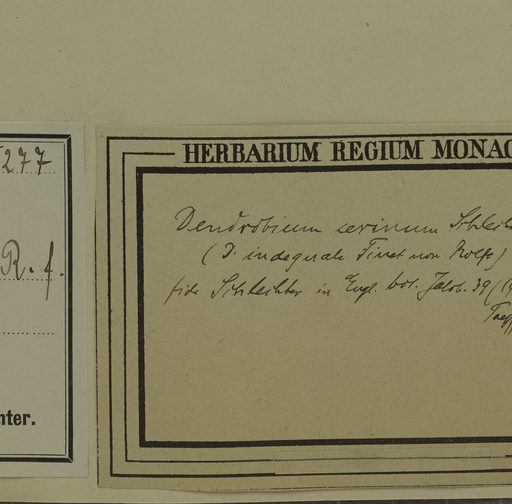 277
R. f.
nter.
HERBARIUM REGIUM MONAC
Dendrobium serinum Schlecht
(D. indegerale Finet non Rolfe)
fide Schlechter in Engl. bot. Jahrb. 39/19